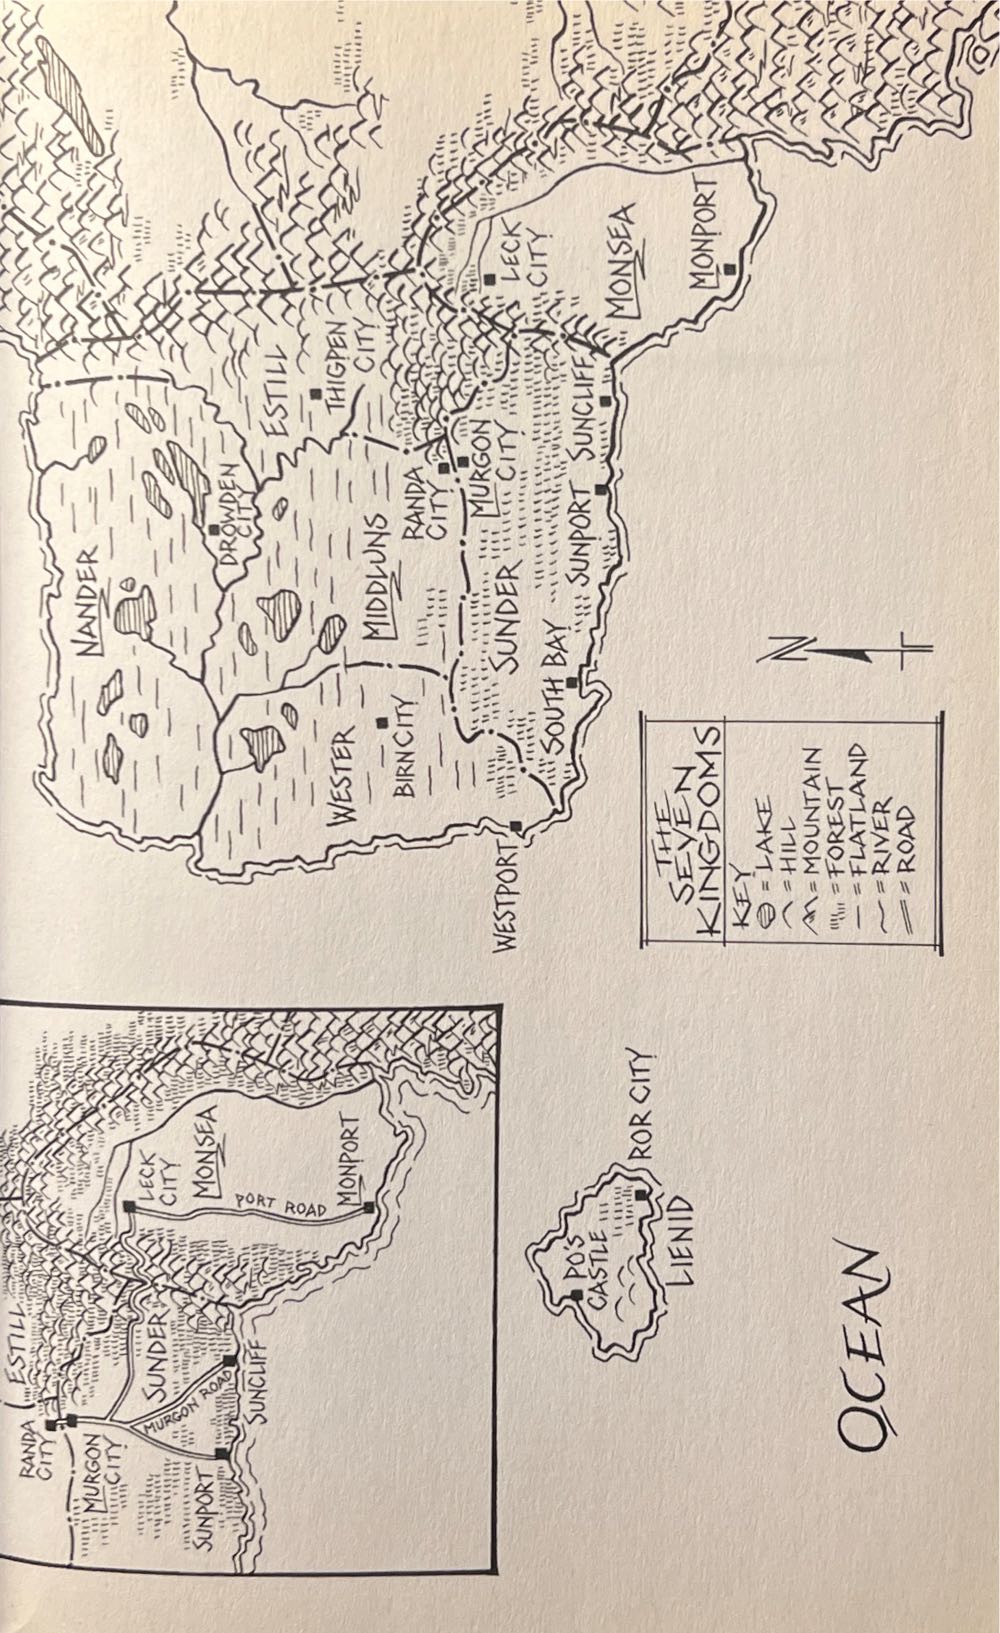 NANDER
DROWDEN
CITY
ESTILL
THIGPEN
CITY
MIDDLUNS
WESTER
BIRN CITY
RANDA
CITY
MURGON
CITY
SUNDER
LECK
CITY
MONSEA
MONPORT
WESTPORT
SOUTH BAY
SUNPORT
SUNCLIFF
N
THE
SEVEN
KINGDOMS
KEY
= LAKE
= HILL
= MOUNTAIN
= FOREST
= FLATLAND
= RIVER
= ROAD
ESTILL
RANDA
CITY
MURGON
CITY
SUNDER
MURGON ROAD
SUNPORT
SUNCLIFF
LECK
CITY
MONSEA
PORT ROAD
MONPORT
PO'S
CASTLE
ROR CITY
LIENID
OCEAN